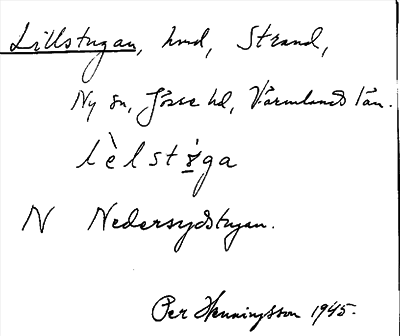 Lillstugan, hmd, Strand,
Ny sn, Jösse hd, Värmlands län.
lèlst ga
N Nedersydstugan.
Per Henningsson 1945.